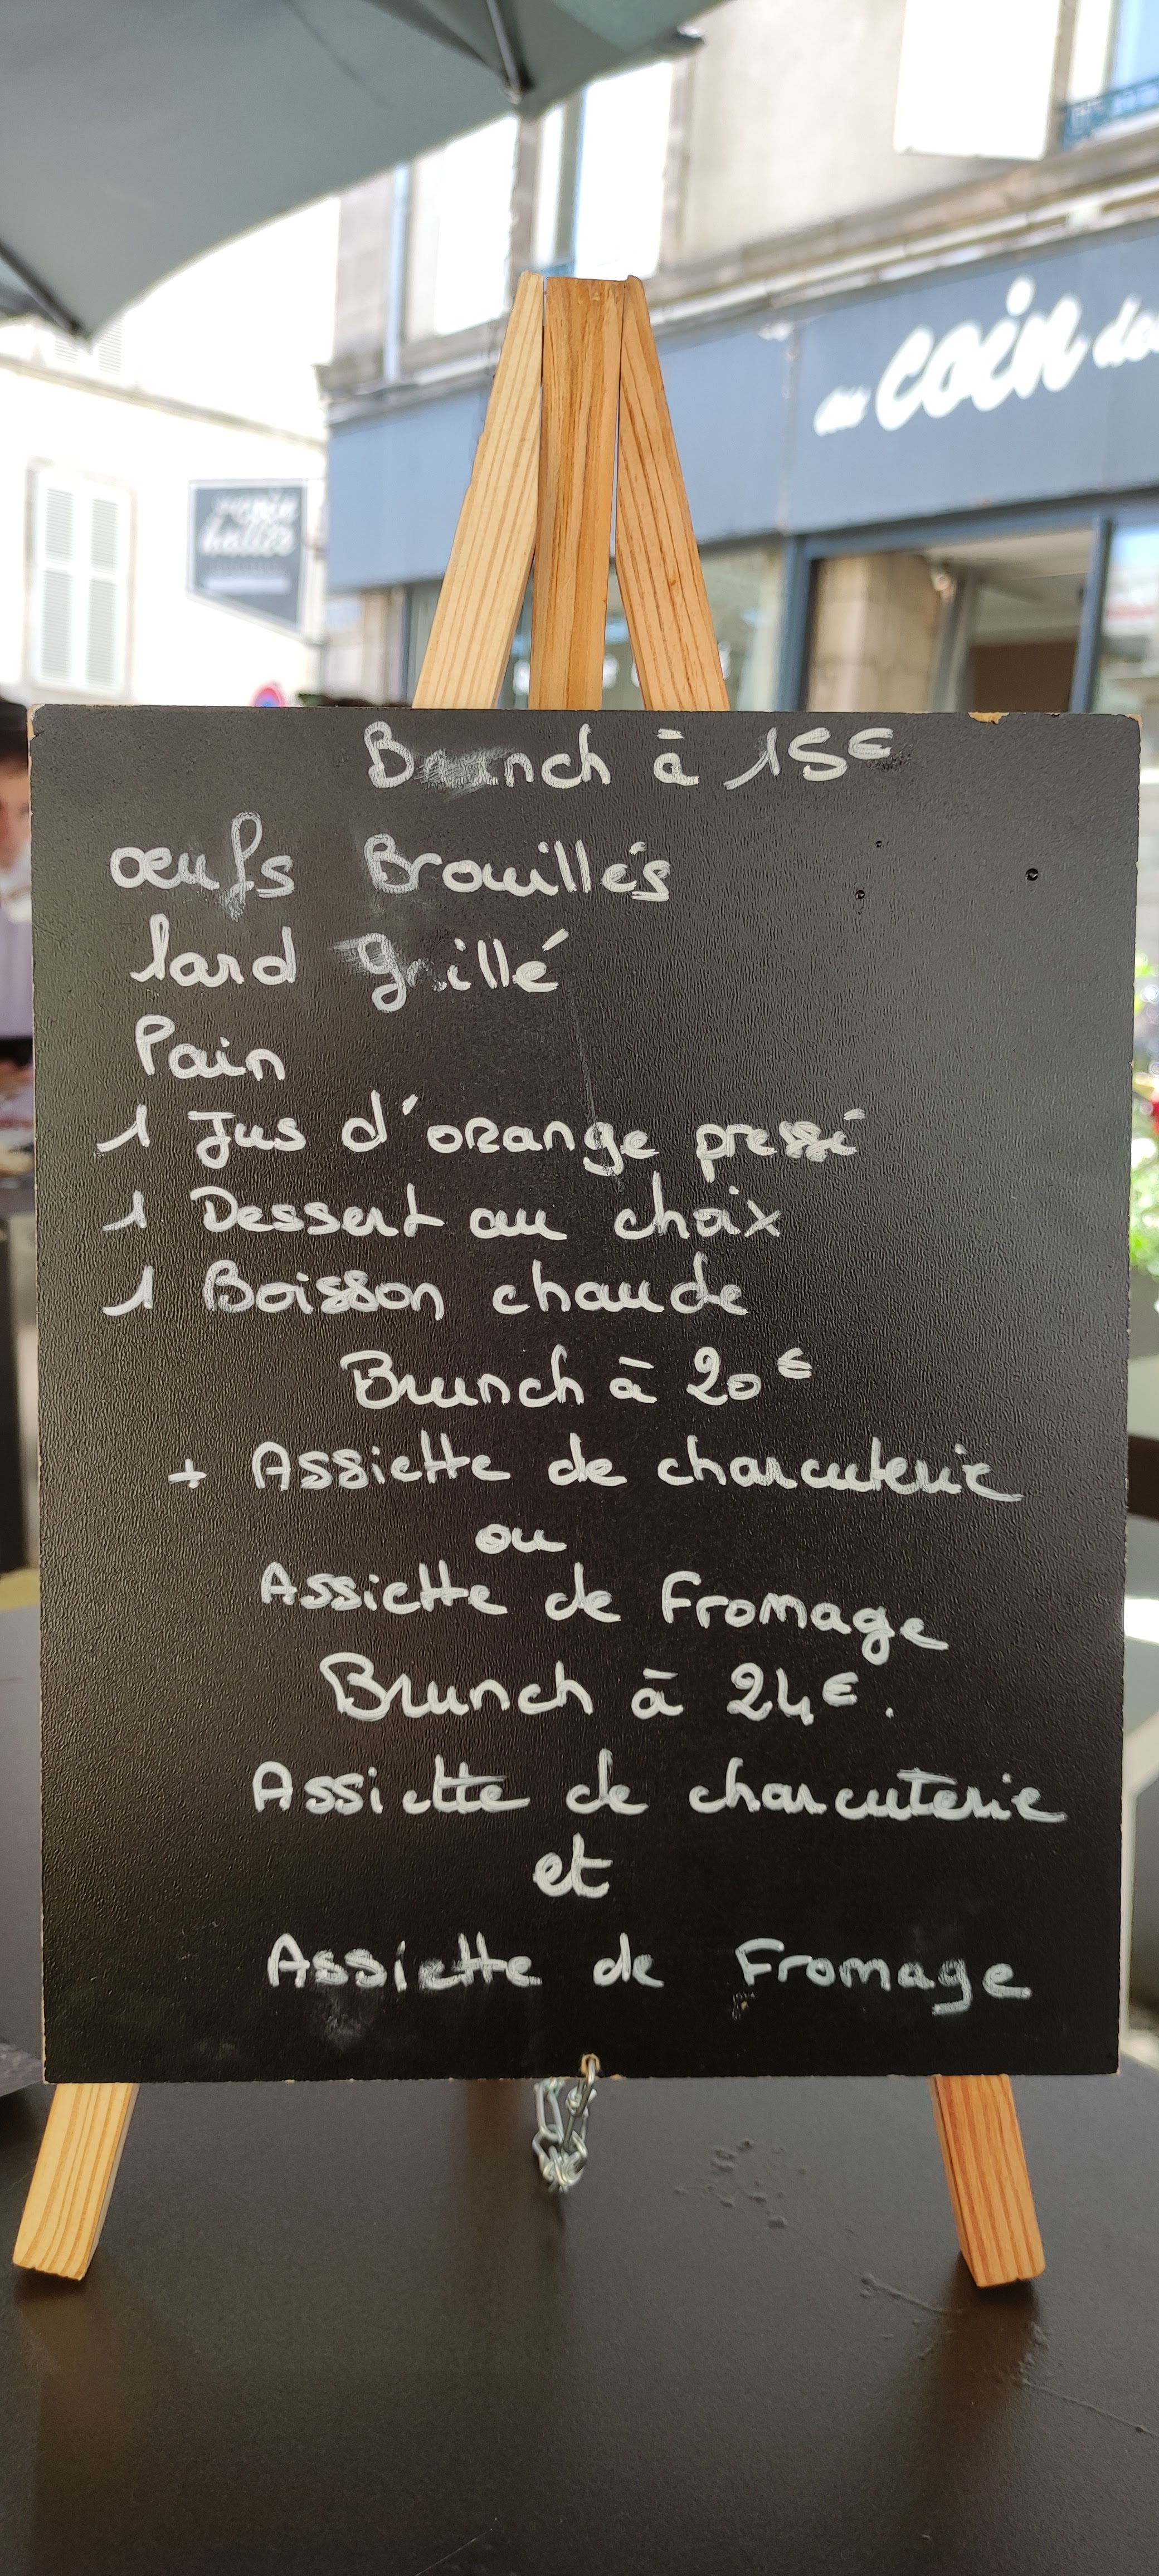 au coin des
coin
halles
Brunch à 15€
œufs Brouillés
lard grillé
Pain
1 Jus d'orange pressé
1 Dessert au choix
1 Boisson chaude
Brunch à 20€
+ Assiette de charcuterie
ou
Assiette de Fromage
Brunch à 24€.
Assiette de charcuterie
et
Assiette de Fromage